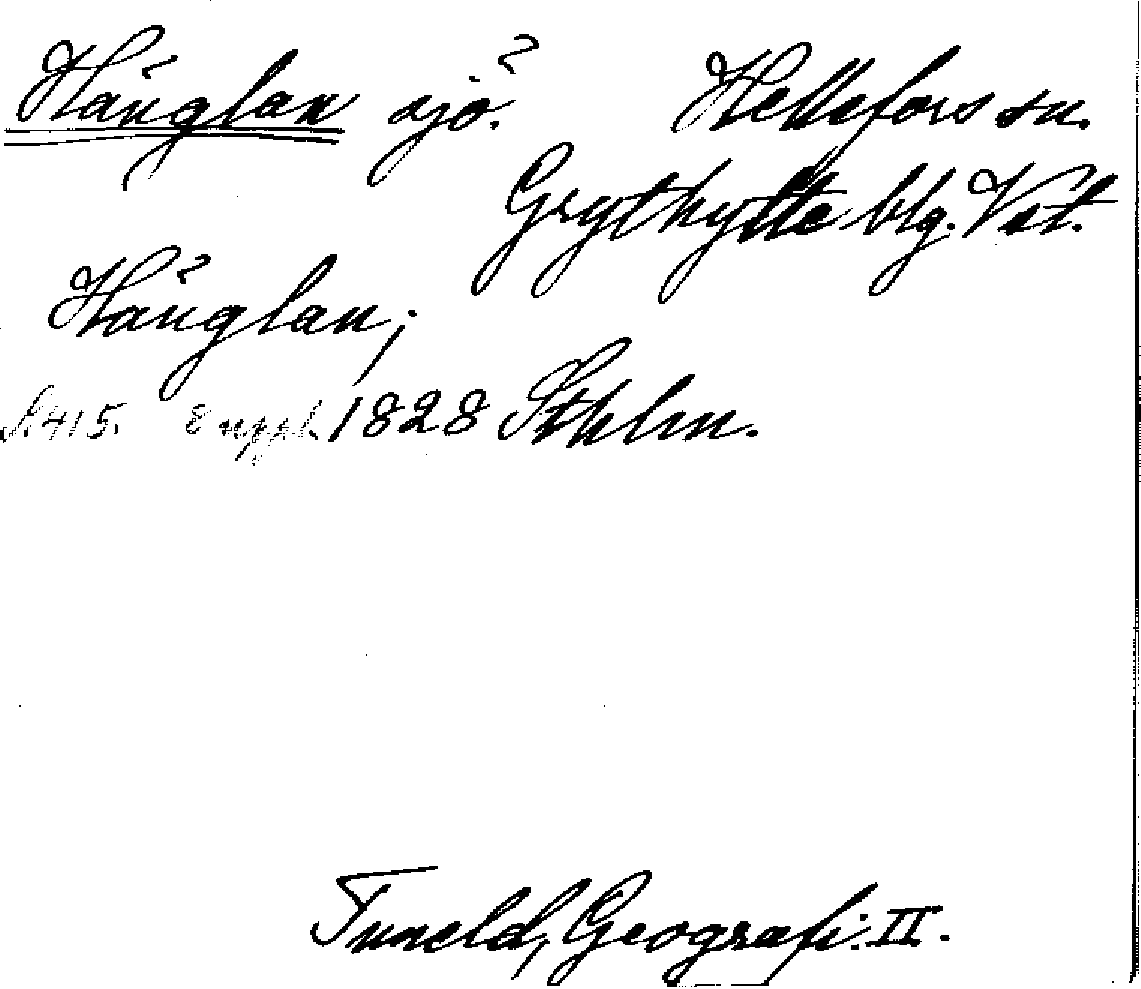 Hänglan sjö?
Hellefors sn.
Grythytte blg. Vstm.
Hänglan;
S. 415. 8 uppl. 1828 Sthlm.
Tuneld, Geografi. II.